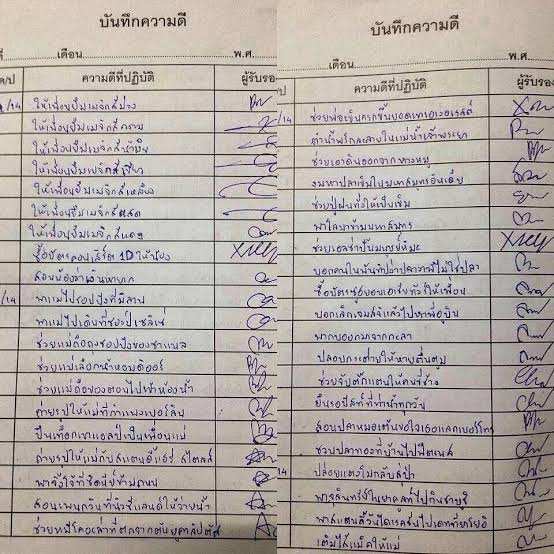 บันทึกความดี
เดือน พ.ศ.
ความดีที่ปฏิบัติ ผู้รับรอง
/14 ให้เพื่อนยืมเมจิกสีม่วง
ให้เพื่อนยืมเมจิกสีคราม
ให้เพื่อนยืมเมจิกสีน้ำเงิน
ให้เพื่อนยืมเมจิกสีเขียว
ให้เพื่อนยืมเมจิกสีเหลือง
ให้เพื่อนยืมเมจิกสีแสด
ให้เพื่อนยืมเมจิกสีแดง
ซื้อบัตรคอนเสิร์ต 1D ให้น้อง
สอนน้องว่ายน้ำท่า
/14 พาแม่ไปช้อปปิ้งที่มิลาน
พาแม่ไปเดินที่ชองป์เซลิเซ่
ช่วยแม่ถือถุงช้อปปิ้งของชาแนล
ช่วยแม่เลือกน้ำหอมดิออร์
ช่วยแม่ถือของตอนไปเข้าห้องน้ำ
ถ่ายรูปให้แม่ที่กำแพงเบอร์ลิน
ปีนเทือกเขาแอลป์เป็นเพื่อนแม่
ถ่ายรูปให้แม่กับสแตนดี้แฮร์รี่ สไตลส์
พาจิงโจ้ที่ซิดนีย์ข้ามถนน
สอนเพนกวินที่นิวซีแลนด์ให้ว่ายน้ำ
ช่วยหมีโคอาล่าที่ตกจากต้นยูคาลิปตัส
บันทึกความดี
เดือน พ.ศ.
ความดีที่ปฏิบัติ ผู้รับรอง
/14 ช่วยพ่อเข็นครกขึ้นยอดเขาเอเวอเรสต์
ตำน้ำพริกละลายในแม่น้ำเจ้าพระยา
ช่วยเอาดินออกจากหางหมู
งมหาปลาเข็มในมหาสมุทรอินเดีย
ช่วยปู่ฝนทั่งให้เป็นเข็ม
พาโลมาข้ามมหาสมุทร
ช่วยเอลซ่าปั้นมนุษย์หิมะ
บอกคนในพันทิปว่าปลาวาฬไม่ใช่ปลา
ซื้อบัตรซูเปอร์ให้เพื่อน
พากบออกมาจากกะลา
ปลอบกระต่ายให้หายตื่นตูม
ช่วยจับตั๊กแตนให้คนขี่ช้าง
ยืนรอบีสท์ที่ท่าน้ำทุกวัน
สอนปลาหมอแต่นของเธอแลกเบอร์โทร
ชวนปลาทองที่บ้านไปฟิตเนส
/14 ปล่อยแตงโมกลับสู่ป่า
พาจุลินทรีย์ในยาคูลท์ไปกินชาบูชิ
เติมไส้แม็คให้แม่